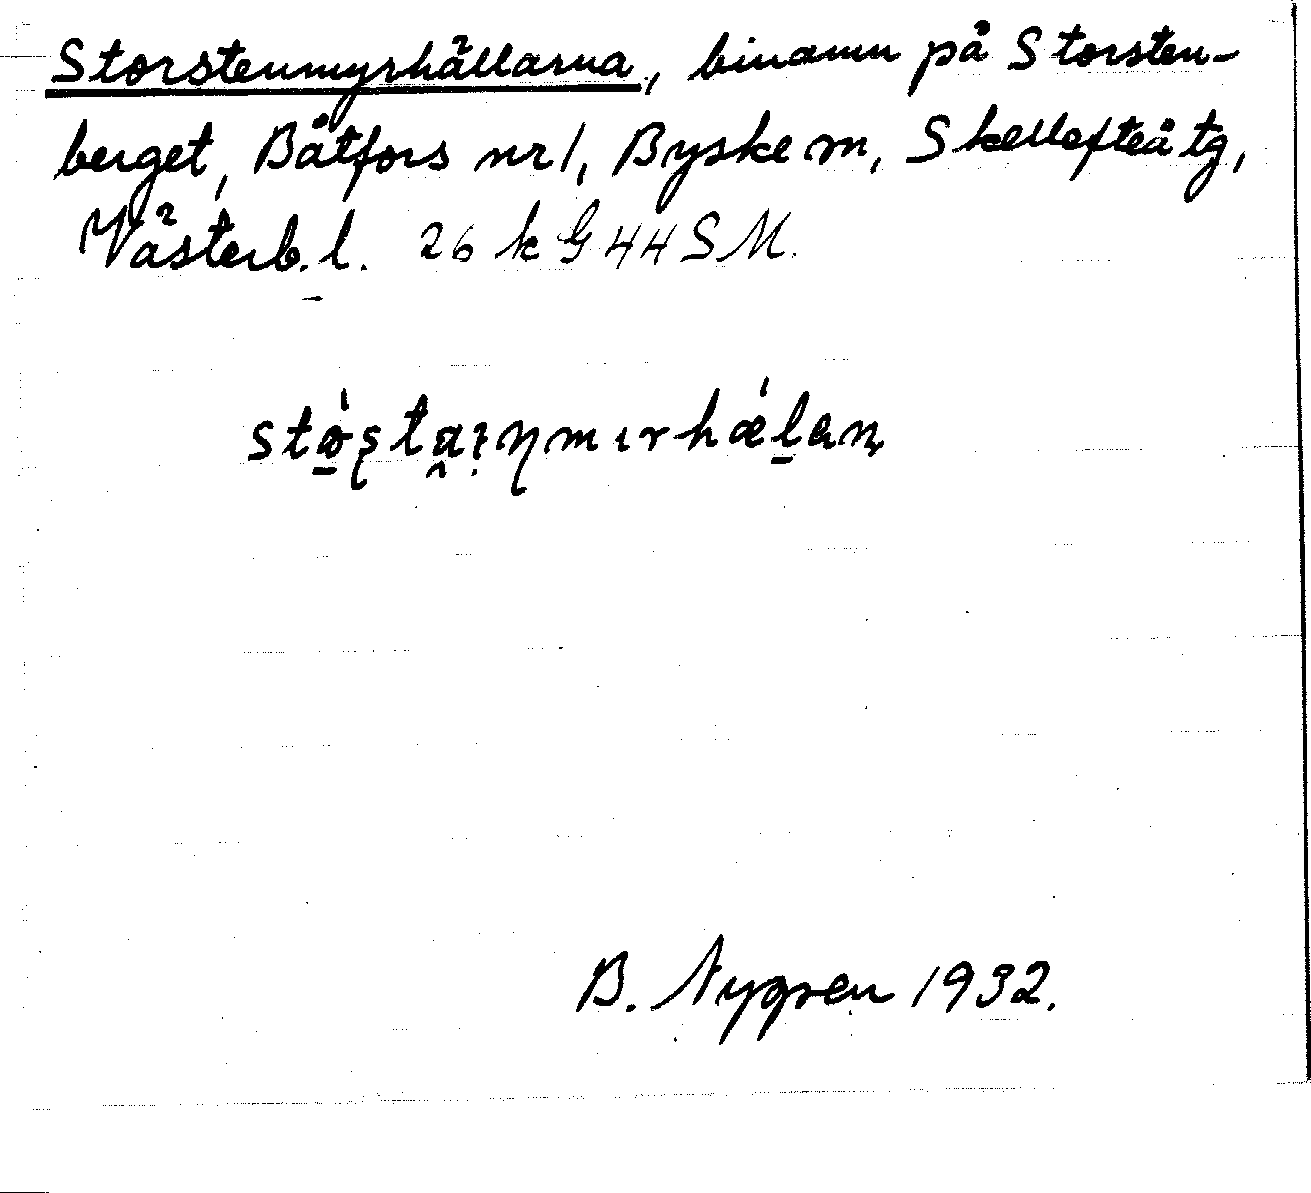 Storstenmyrhällarna, binamn på Storsten-
berget, Båtfors nr 1, Byske sn, Skellefteå tg,
Västerb. l. 26 k G 44 S M.
B. Nygren 1932.